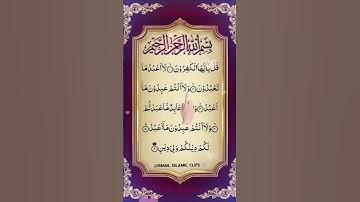 بِسْمِ اللهِ الرَّحْمٰنِ الرَّحِيْمِ
قُلْ يٰۤاَيُّهَا الْكٰفِرُوْنَ ۙ لَاۤ اَعْبُدُ مَا
تَعْبُدُوْنَ ۙ وَلَاۤ اَنْتُمْ عٰبِدُوْنَ مَاۤ
اَعْبُدُ ۚ وَلَاۤ عَابِدٌ مَّا عَبَدْتُّمْ
وَلَاۤ اَنْتُمْ عٰبِدُوْنَ مَاۤ اَعْبُدُ
لَكُمْ دِيْنُكُمْ وَلِيَ دِيْنِ
@ISMAIL ISLAMIC CLIPS